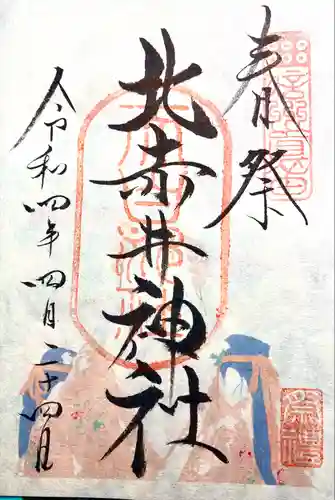 春祭
北赤井神社
令和四年四月二十四日